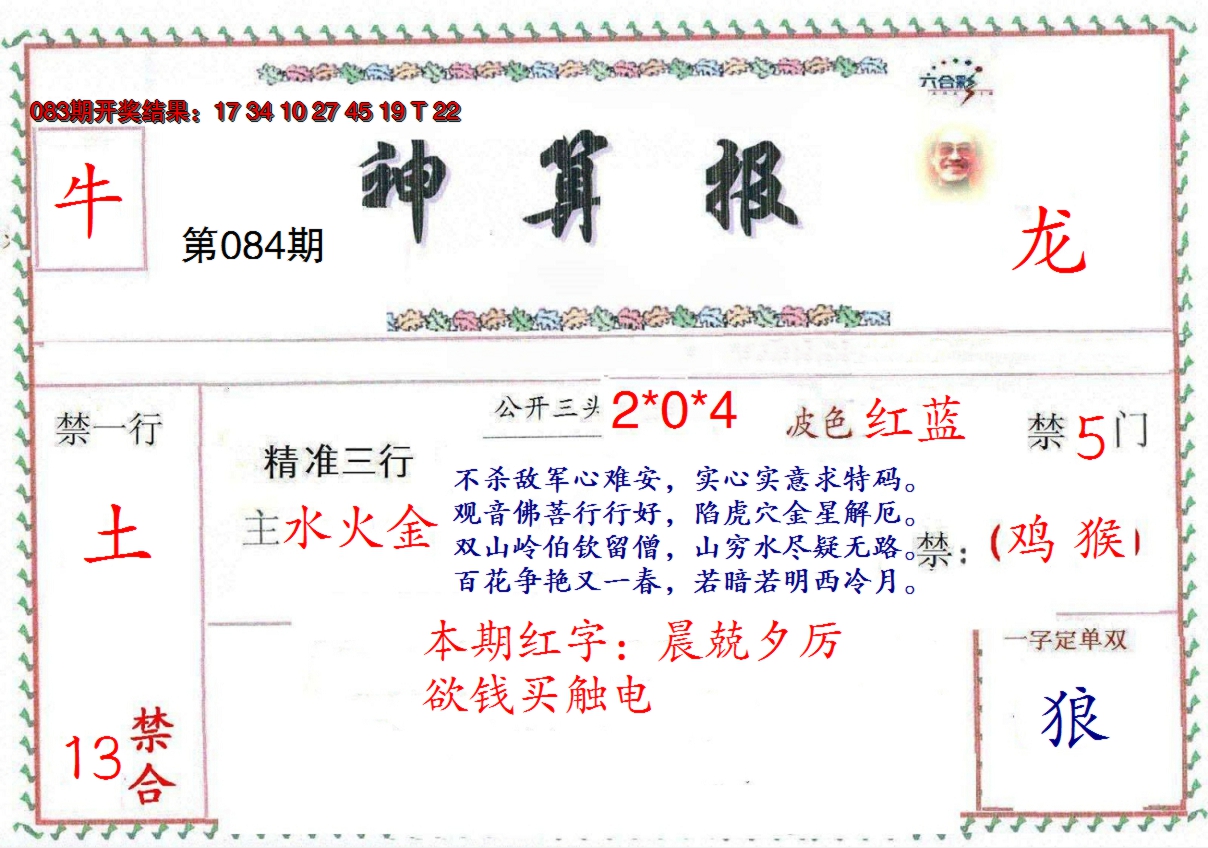 六合彩
083期开奖结果：17 34 10 27 45 19 T 22
牛
神算报
第084期
龙
禁一行
土
13禁合
精准三行
主水火金
公开三头 2*0*4
波色 红蓝
禁5门
不杀敌军心难安，实心实意求特码。
观音佛菩行行好，陷虎穴金星解厄。
双山岭伯钦留僧，山穷水尽疑无路。
百花争艳又一春，若暗若明西冷月。
禁：（鸡 猴）
本期红字：晨兢夕厉
欲钱买触电
一字定单双
狼